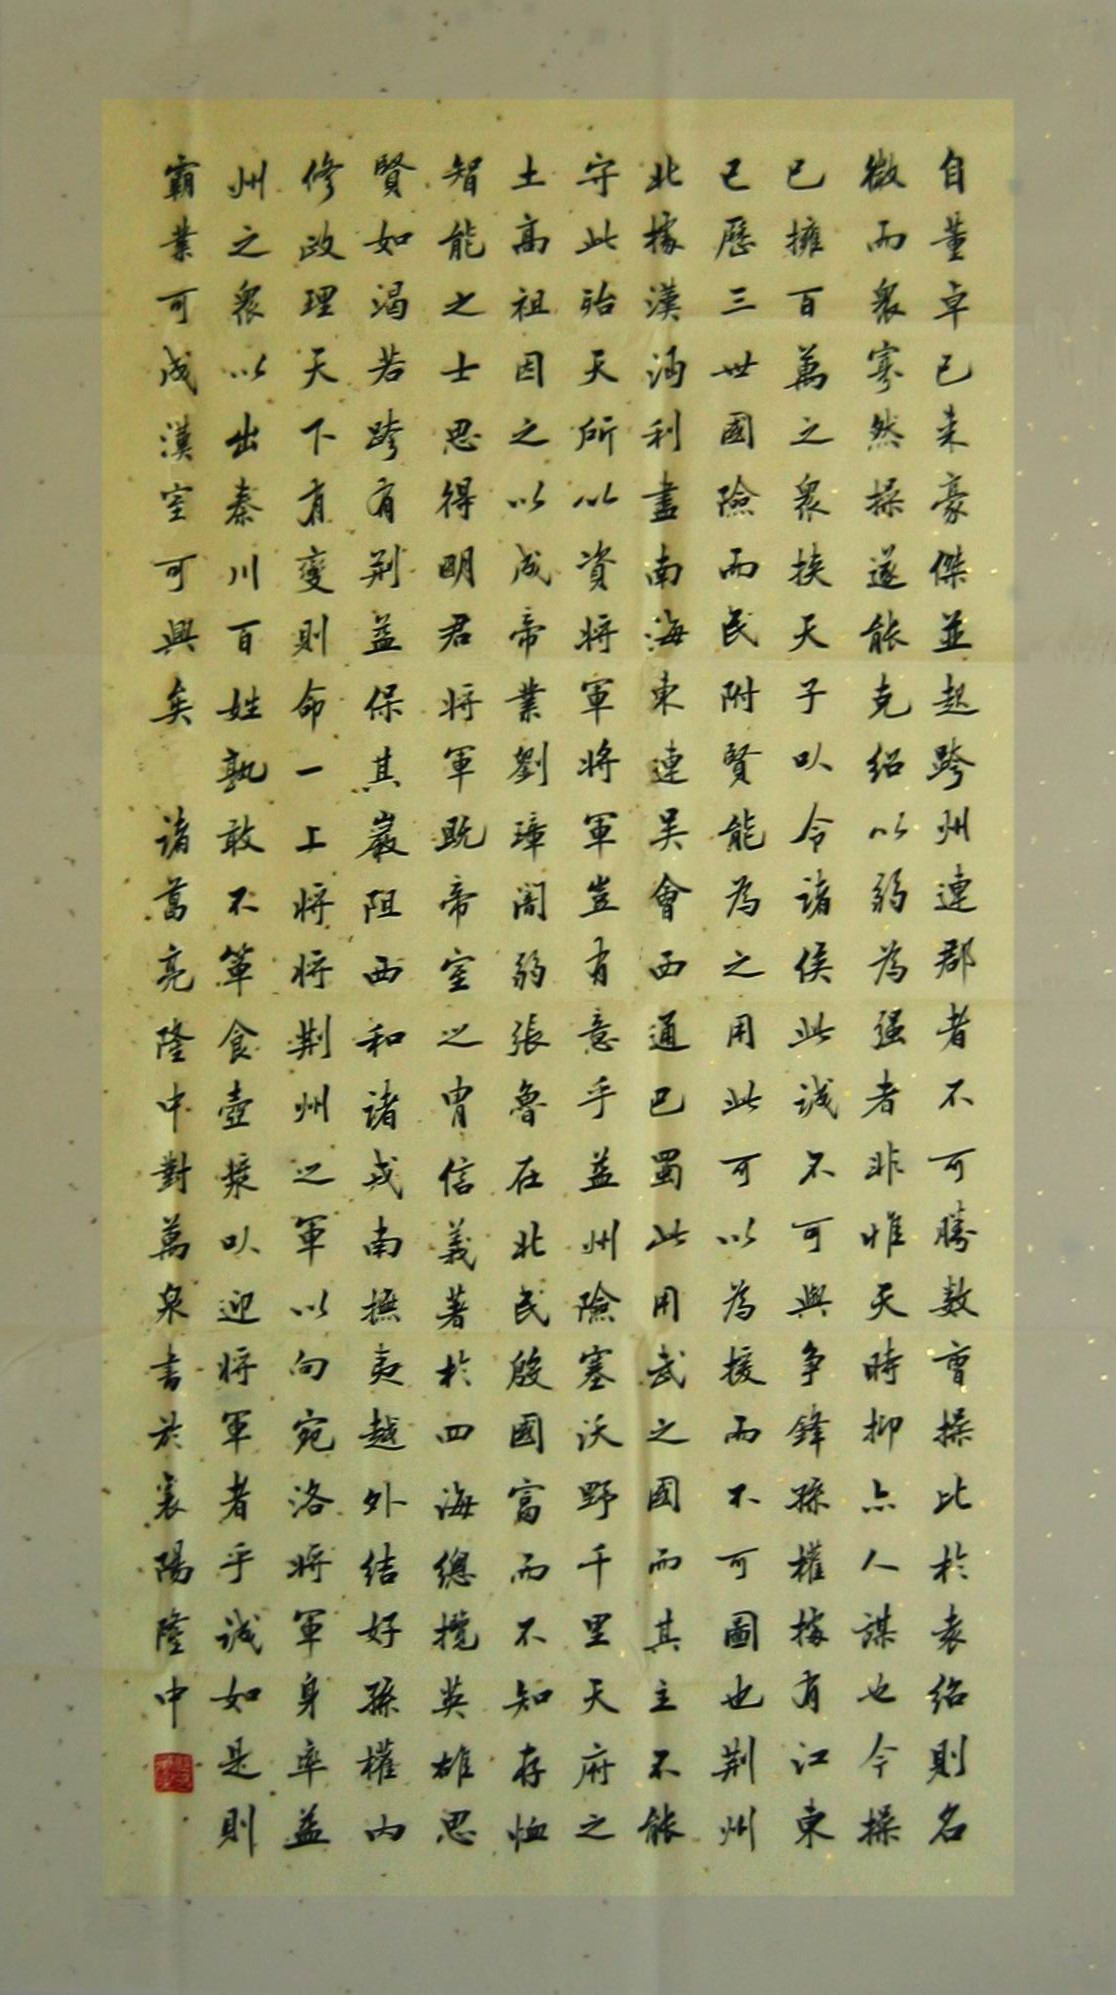 自董卓已来豪傑並起跨州連郡者不可勝數曹操比於袁紹則名
微而衆寡然操遂能克紹以弱為强者非惟天時抑亦人謀也今操
已擁百萬之衆挾天子以令諸侯此誠不可與争鋒孫權據有江東
已歷三世國險而民附賢能為之用此可以為援而不可圖也荆州
北據漢沔利盡南海東連吴會西通巴蜀此用武之國而其主不能
守此殆天所以資將軍將軍豈有意乎益州險塞沃野千里天府之
土高祖因之以成帝業劉璋闇弱張魯在北民殷國富而不知存恤
智能之士思得明君將軍既帝室之胄信義著於四海總攬英雄思
賢如渴若跨有荆益保其巖阻西和諸戎南撫夷越外结好孫權内
修政理天下有變則命一上將將荆州之軍以向宛洛將軍身率益
州之衆以出秦川百姓孰敢不簞食壺漿以迎將軍者乎诚如是則
霸業可成漢室可興矣 諸葛亮隆中對萬泉書於襄陽隆中